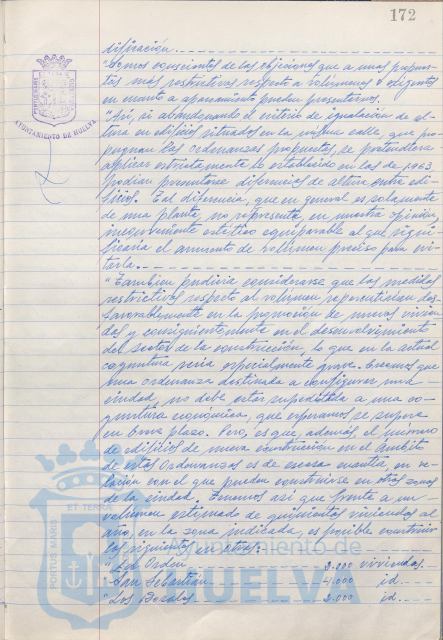 172
dificación.
"Somos conscientes de las objeciones que a unas propues-
tas más restrictivas respecto a volúmenes y exigentes
en cuanto a aparcamiento pueden presentarse.
"Así, si abandonando el criterio de igualación de al-
tura en edificios situados en la misma calle, que pro-
pugnan las ordenanzas propuestas, se pretendiera
aplicar estrictamente lo establecido en las de 1963
podían presentarse diferencias de altura entre edi-
ficios. Tal diferencia, que en general es solamente
de una planta, no representa, en nuestra opinión,
inconveniente estético equiparable al que signi-
ficaría el aumento de volumen preciso para evi-
tarla.
"También pudiera considerarse que las medidas
restrictivas respecto al volumen repercutirían des-
favorablemente en la promoción de nuevas vivien-
das y consiguientemente en el desenvolvimiento
del sector de la construcción, lo que en la actual
coyuntura sería especialmente grave. Creemos que
una ordenanza destinada a configurar una
ciudad, no debe estar supeditada a una co-
yuntura económica, que esperamos se supere
en breve plazo. Pero, es que además, el número
de edificios de nueva construcción en el ámbito
de estas Ordenanzas es de escasa cuantía, en re-
lación con el que pueden construirse en otras zonas
de la ciudad. Tenemos así que frente a un
volumen estimado de quinientas viviendas al
año, en la zona indicada, es posible construir
las siguientes en otras:
"La Orden 3.000 viviendas.
"San Sebastián 4.000 id.
"Los Rosales 2.000 id.
AYUNTAMIENTO DE HUELVA
PORTUS MARIS ET TERRAE
Ayuntamiento de
HUELVA